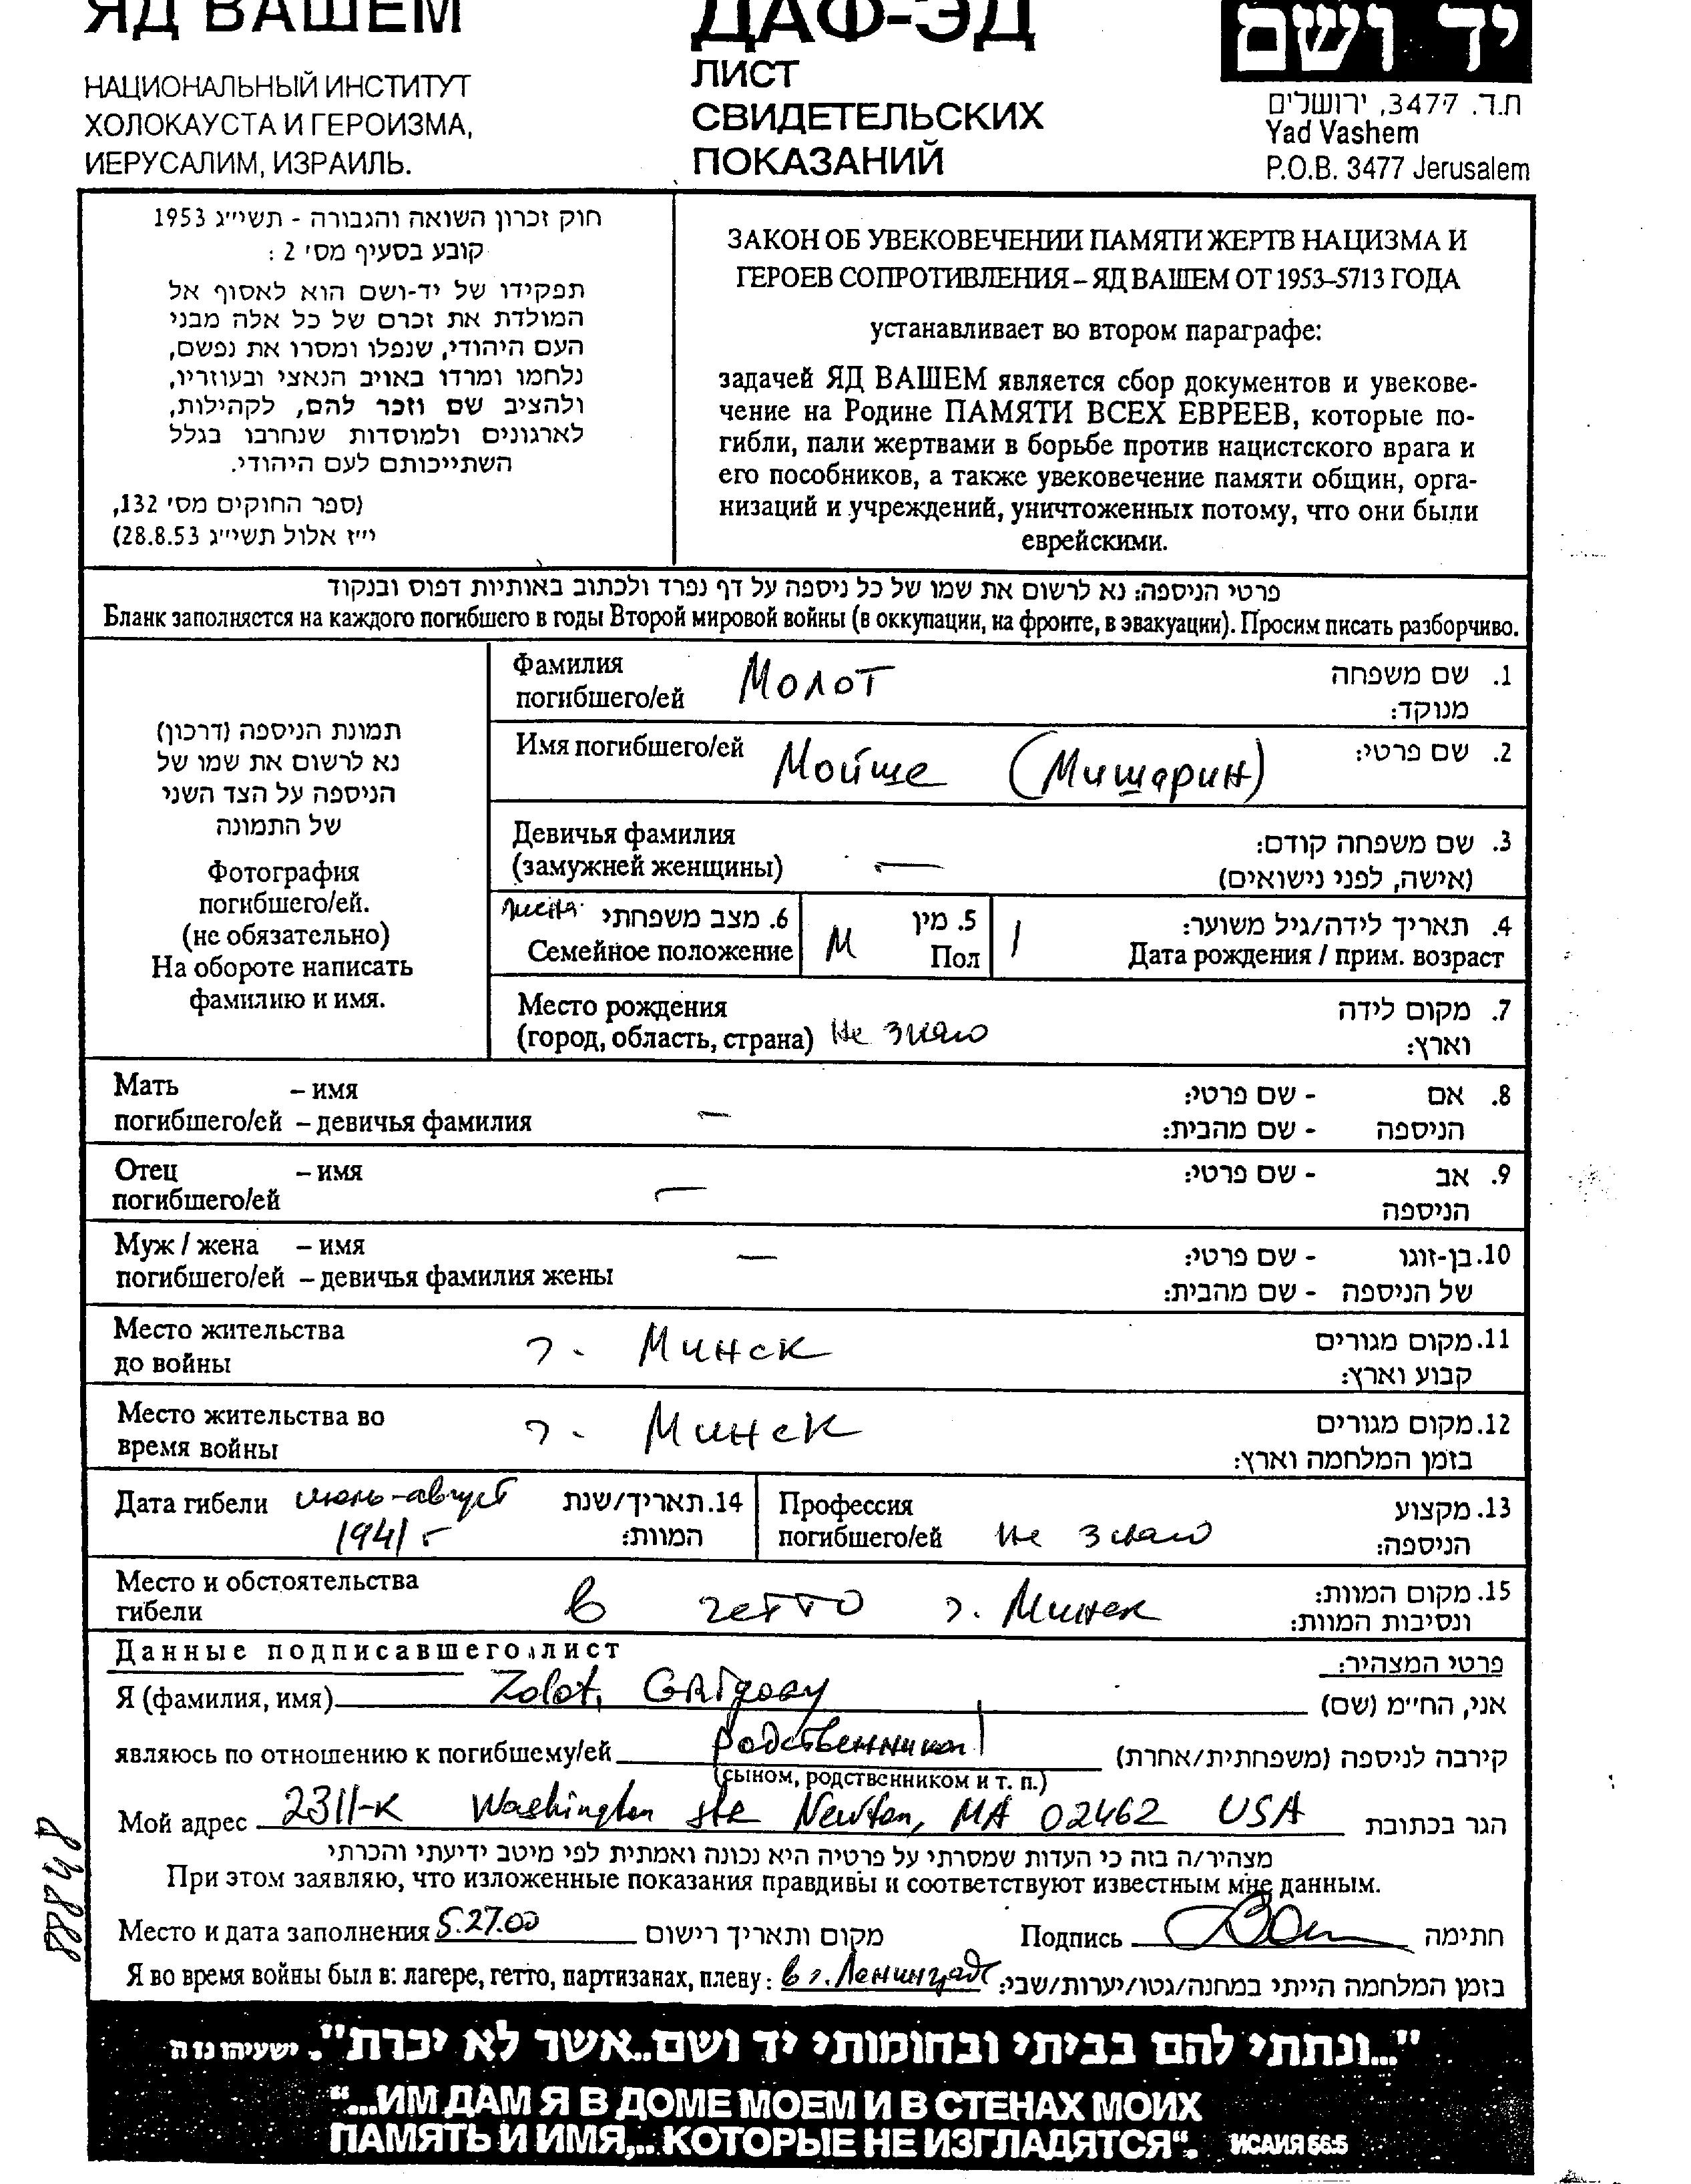 ЯД ВАШЕМ
НАЦИОНАЛЬНЫЙ ИНСТИТУТ
ХОЛОКАУСТА И ГЕРОИЗМА,
ИЕРУСАЛИМ, ИЗРАИЛЬ.
ДАФ-ЭД
ЛИСТ
СВИДЕТЕЛЬСКИХ
ПОКАЗАНИЙ
יד ושם
ת.ד. 3477, ירושלים
Yad Vashem
P.O.B. 3477 Jerusalem
חוק זכרון השואה והגבורה - תשי״ג 1953
קובע בסעיף מס׳ 2 :
תפקידו של יד-ושם הוא לאסוף אל
המולדת את זכרם של כל אלה מבני
העם היהודי, שנפלו ומסרו את נפשם,
נלחמו ומרדו באויב הנאצי ובעוזריו,
ולהציב שם וזכר להם, לקהילות,
לארגונים ולמוסדות שנחרבו בגלל
השתייכותם לעם היהודי.
(ספר החוקים מס׳ 132,
י״ז אלול תשי״ג 28.8.53)
ЗАКОН ОБ УВЕКОВЕЧЕНИИ ПАМЯТИ ЖЕРТВ НАЦИЗМА И
ГЕРОЕВ СОПРОТИВЛЕНИЯ – ЯД ВАШЕМ ОТ 1953–5713 ГОДА
устанавливает во втором параграфе:
задачей ЯД ВАШЕМ является сбор документов и увекове-
чение на Родине ПАМЯТИ ВСЕХ ЕВРЕЕВ, которые по-
гибли, пали жертвами в борьбе против нацистского врага и
его пособников, а также увековечение памяти общин, орга-
низаций и учреждений, уничтоженных потому, что они были
еврейскими.
פרטי הניספה: נא לרשום את שמו של כל ניספה על דף נפרד ולכתוב באותיות דפוס ובנקוד
Бланк заполняется на каждого погибшего в годы Второй мировой войны (в оккупации, на фронте, в эвакуации). Просим писать разборчиво.
תמונת הניספה (דרכון)
נא לרשום את שמו של
הניספה על הצד השני
של התמונה
Фотография
погибшего/ей.
(не обязательно)
На обороте написать
фамилию и имя.
Фамилия
погибшего/ей Молот
1. שם משפחה
מנוקד:
Имя погибшего/ей Мойше (Мишарин)
2. שם פרטי:
Девичья фамилия
(замужней женщины) —
3. שם משפחה קודם:
(אישה, לפני נישואים)
6. מצב משפחתי
Семейное положение
5. מין
Пол М
4. תאריך לידה/גיל משוער:
Дата рождения / прим. возраст
Место рождения
(город, область, страна) не знаю
7. מקום לידה
וארץ:
Мать – имя
погибшего/ей – девичья фамилия —
8. אם - שם פרטי:
הניספה - שם מהבית:
Отец – имя
погибшего/ей —
9. אב - שם פרטי:
הניספה
Муж / жена – имя
погибшего/ей – девичья фамилия жены —
10. בן-זוגו - שם פרטי:
של הניספה - שם מהבית:
Место жительства
до войны г. Минск
11. מקום מגורים
קבוע וארץ:
Место жительства во
время войны г. Минск
12. מקום מגורים
בזמן המלחמה וארץ:
Дата гибели июль-август
1941 г
14. תאריך/שנת
המוות:
Профессия
погибшего/ей не знаю
13. מקצוע
הניספה:
Место и обстоятельства
гибели в гетто г. Минск
15. מקום המוות:
ונסיבות המוות:
Данные подписавшего лист
פרטי המצהיר:
Я (фамилия, имя) Zolot, Grigory אני, החי״מ (שם)
являюсь по отношению к погибшему/ей родственником קירבה לניספה (משפחתית/אחרת)
(сыном, родственником и т. п.)
Мой адрес 2311-K Washington str Newton, MA 02462 USA הגר בכתובת
מצהיר/ה בזה כי העדות שמסרתי על פרטיה היא נכונה ואמתית לפי מיטב ידיעתי והכרתי
При этом заявляю, что изложенные показания правдивы и соответствуют известным мне данным.
Место и дата заполнения 5.27.00 מקום ותאריך רישום Подпись חתימה
Я во время войны был в: лагере, гетто, партизанах, плену: в г. Ленинграде בזמן המלחמה הייתי במחנה/גטו/יערות/שבי:
88848
"...ונתתי להם בביתי ובחומותי יד ושם..אשר לא יכרת". ישעיהו נז ה
“...ИМ ДАМ Я В ДОМЕ МОЕМ И В СТЕНАХ МОИХ
ПАМЯТЬ И ИМЯ,.. КОТОРЫЕ НЕ ИЗГЛАДЯТСЯ“. ИСАИЯ 56:5